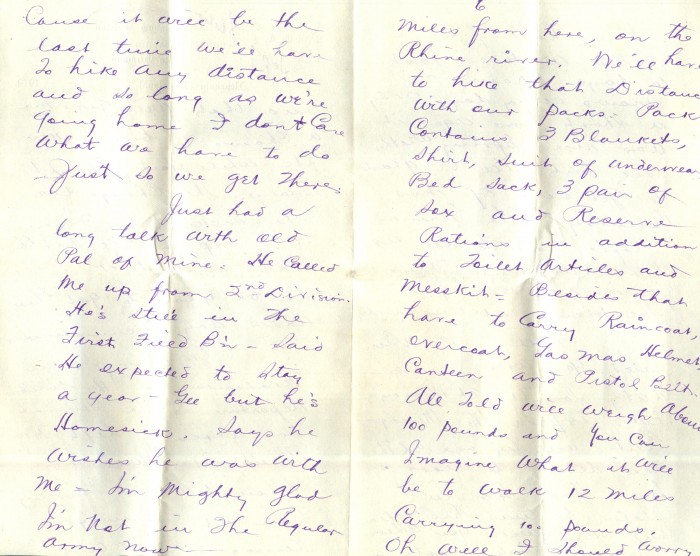 Cause it will be the
last time we'll have
to hike any distance
and so long as we're
going home I don't care
what we have to do
- Just so we get there.
Just had a
long talk with old
Pal of mine - He called
me up from 2nd Division.
He's still in the
First Field B'n - Said
He expected to stay
a year - Gee but he's
Homesick. Says he
wishes he was with
me - I'm mighty glad
I'm not in the Regular
Army now -
6
miles from here, on the
Rhine river. We'll have
to hike that distance
with our packs - Pack
contains 3 Blankets,
shirt, suit of underwear
Bed sack, 3 pair of
sox and Reserve
Rations in addition
to Toilet Articles and
Messkit - Besides that
have to carry Raincoat,
overcoat, Gas mas Helmet,
Canteen and Pistol Belt.
All told will weigh about
100 pounds and you can
Imagine what it will
be to walk 12 miles
Carrying 100 pounds.
Oh well I should worry